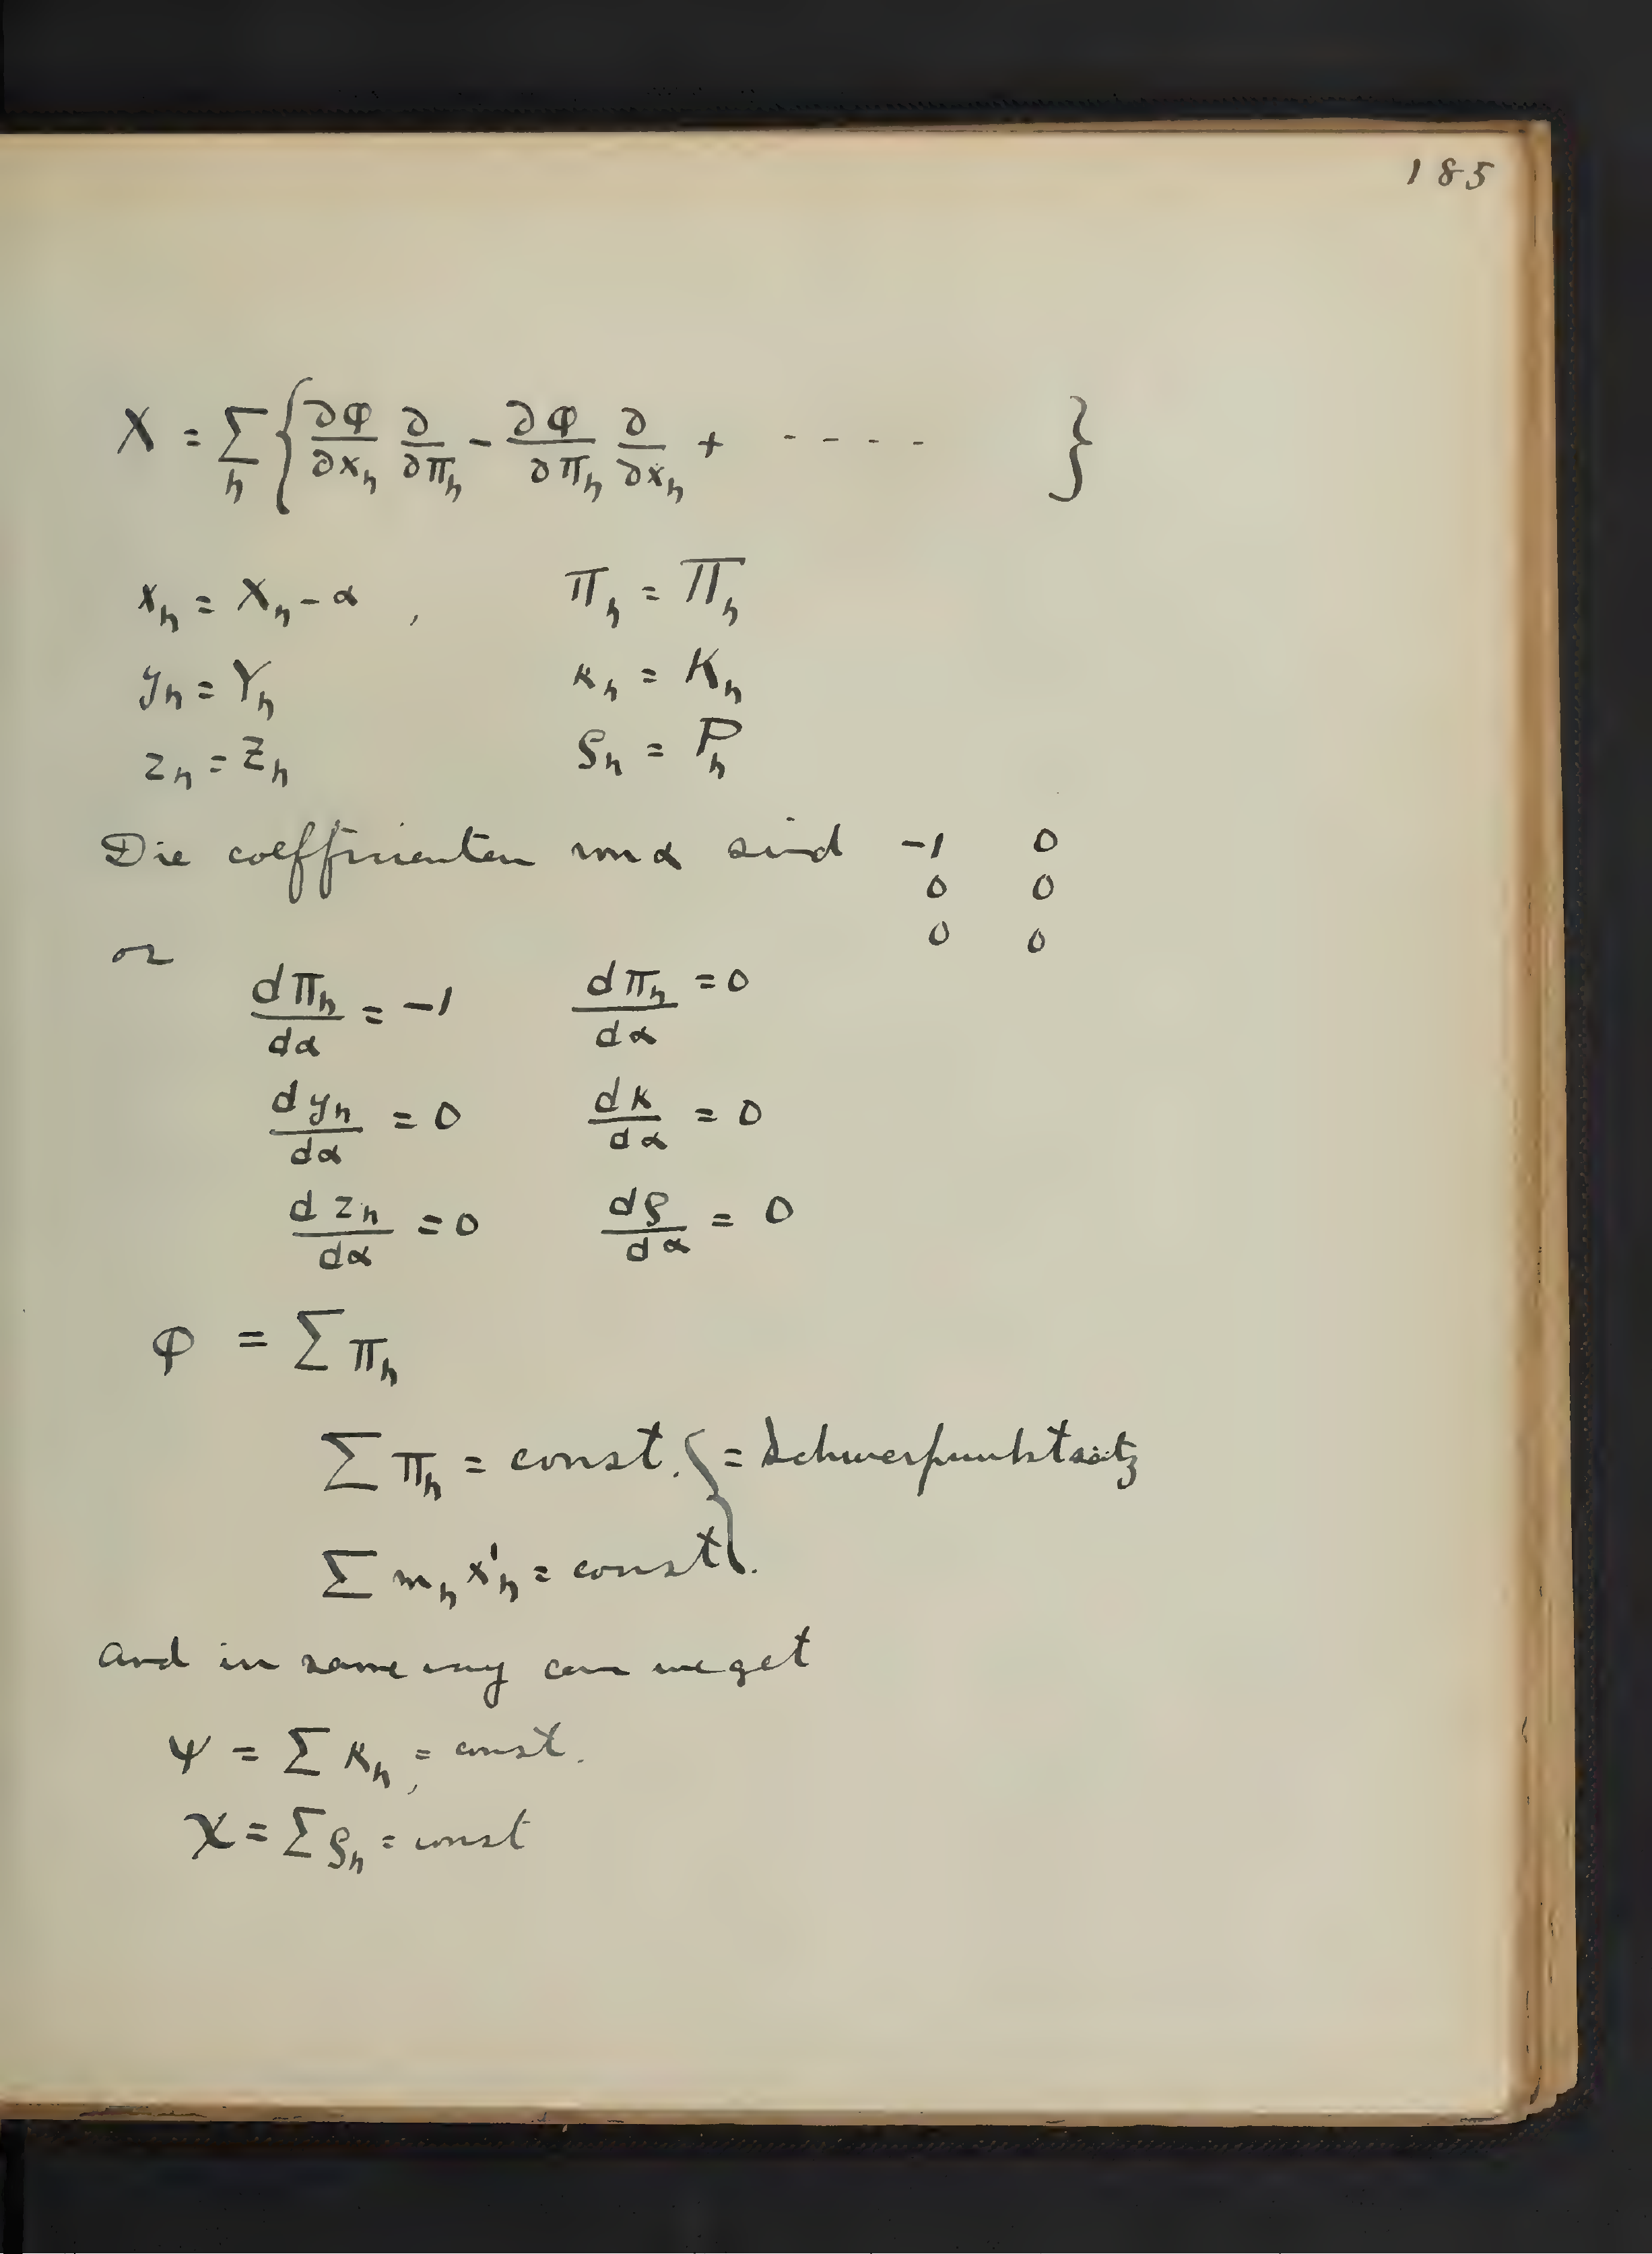 185
X = Σ_h { ∂φ/∂x_h ∂/∂π_h - ∂φ/∂π_h ∂/∂x_h + - - - - }
x_h = X_h - α , π_h = Π_h
y_h = Y_h κ_h = K_h
z_h = Z_h ϱ_h = P_h
Die coefficienten von α sind -1 0
0 0
0 0
or
dπ_h/dα = -1 dπ_h/dα = 0
dy_h/dα = 0 dκ/dα = 0
dz_h/dα = 0 dϱ/dα = 0
φ = Σ π_h
Σ π_h = const. } = Schwerpunktsatz
Σ m_h x'_h = const.
and in same way can we get
ψ = Σ κ_h = const.,
χ = Σ ϱ_h = const